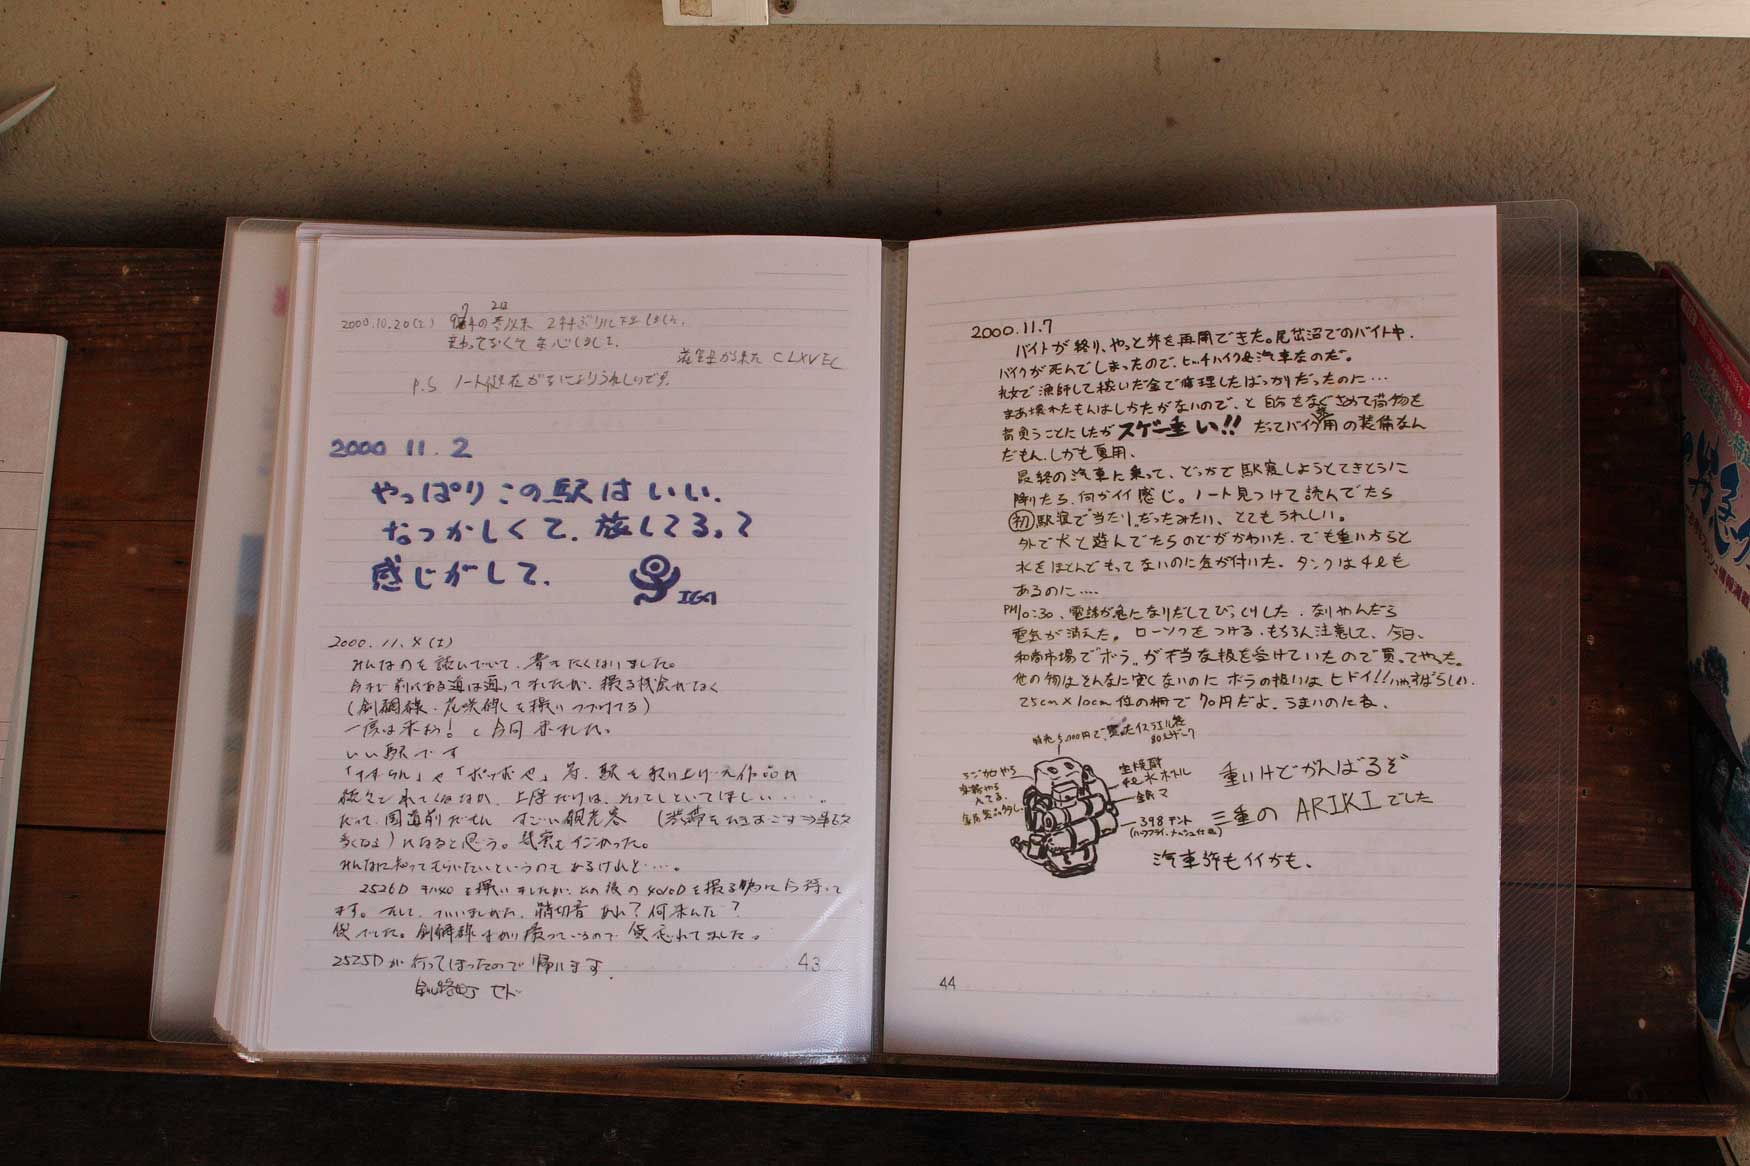 2000.10.20(土) 97年の冬以来 2年ぶりに下車しました。
変わってなくて安心しました。
から来た CLXVEC
P.S ノート健在がなによりうれしいです。
2000 11.2
やっぱりこの駅はいい.
なつかしくて. 旅してる。って
感じがして.
IGA
2000.11.4(土)
みんなのを読んでいて、書きたくなりました。
今まで前にある道は通ってましたが、撮る機会がなく
(釧網線・花咲線)を撮りつづけてる)
一度は来わ! と今回来ました。
いい駅です
「すずらん」や「ポッポや」等、駅を取り上げた作品が
続々と出てくるなか、上厚だけは、そっとしといてほしい……。
だって、国道前だもん すごい観光客 (渋滞をひきおこす⇒
多くなる)になると思う。
みんなに知ってもらいたいというのもあるけれど……。
2526D を撮りましたが、その後の4010Dを撮る為に待って
ます。そして、 踏切音 あれ?何来んだ?
貨でした。釧網線ばかり撮っているので 貨忘れてました。
2525Dが行ってしまったので帰ります.
釧路町 セド
43
2000.11.7
バイトが終り、やっと旅を再開できた。尾岱沼でのバイト中、
バイクが死んでしまったので、ヒッチハイク&汽車なのだ。
礼文で漁師して稼いだ金で修理したばっかりだったのに…
まあ壊れたもんはしかたがないので、と自分をなぐさめて荷物を
背負うことにしたがスゲー重い!! だってバイク旅用の装備なん
だもん、しかも夏用、
最終の汽車に乗って、どっかで駅寝しようとてきとうに
降りたら、何かイイ感じ。ノート見つけて読んでたら
初駅寝で"当たり"だったみたい、とてもうれしい。
外で犬と遊んでたらのどがかわいた。でも重い方らと
水をほとんどもってないのに気が付いた。タンクは4ℓも
あるのに….
PM10:30、電話が急になりだしてびっくりした、なりやんだら
電気が消えた。ローソクをつける、もちろん注意して、今日、
和商市場で"ボラ"が不当な扱を受けていたので買ってやった。
他の物はそんなに安くないのにボラの扱いはヒドイ!!いやすばらしい.
25cm×10cm位の柵で70円だよ、うまいのにね、
特売5,000円で
80ℓザック
4ℓ水ボトル
銀マ
398テント
重いけどがんばるぞ
三重の ARIKIでした
汽車旅もイイかも、
44